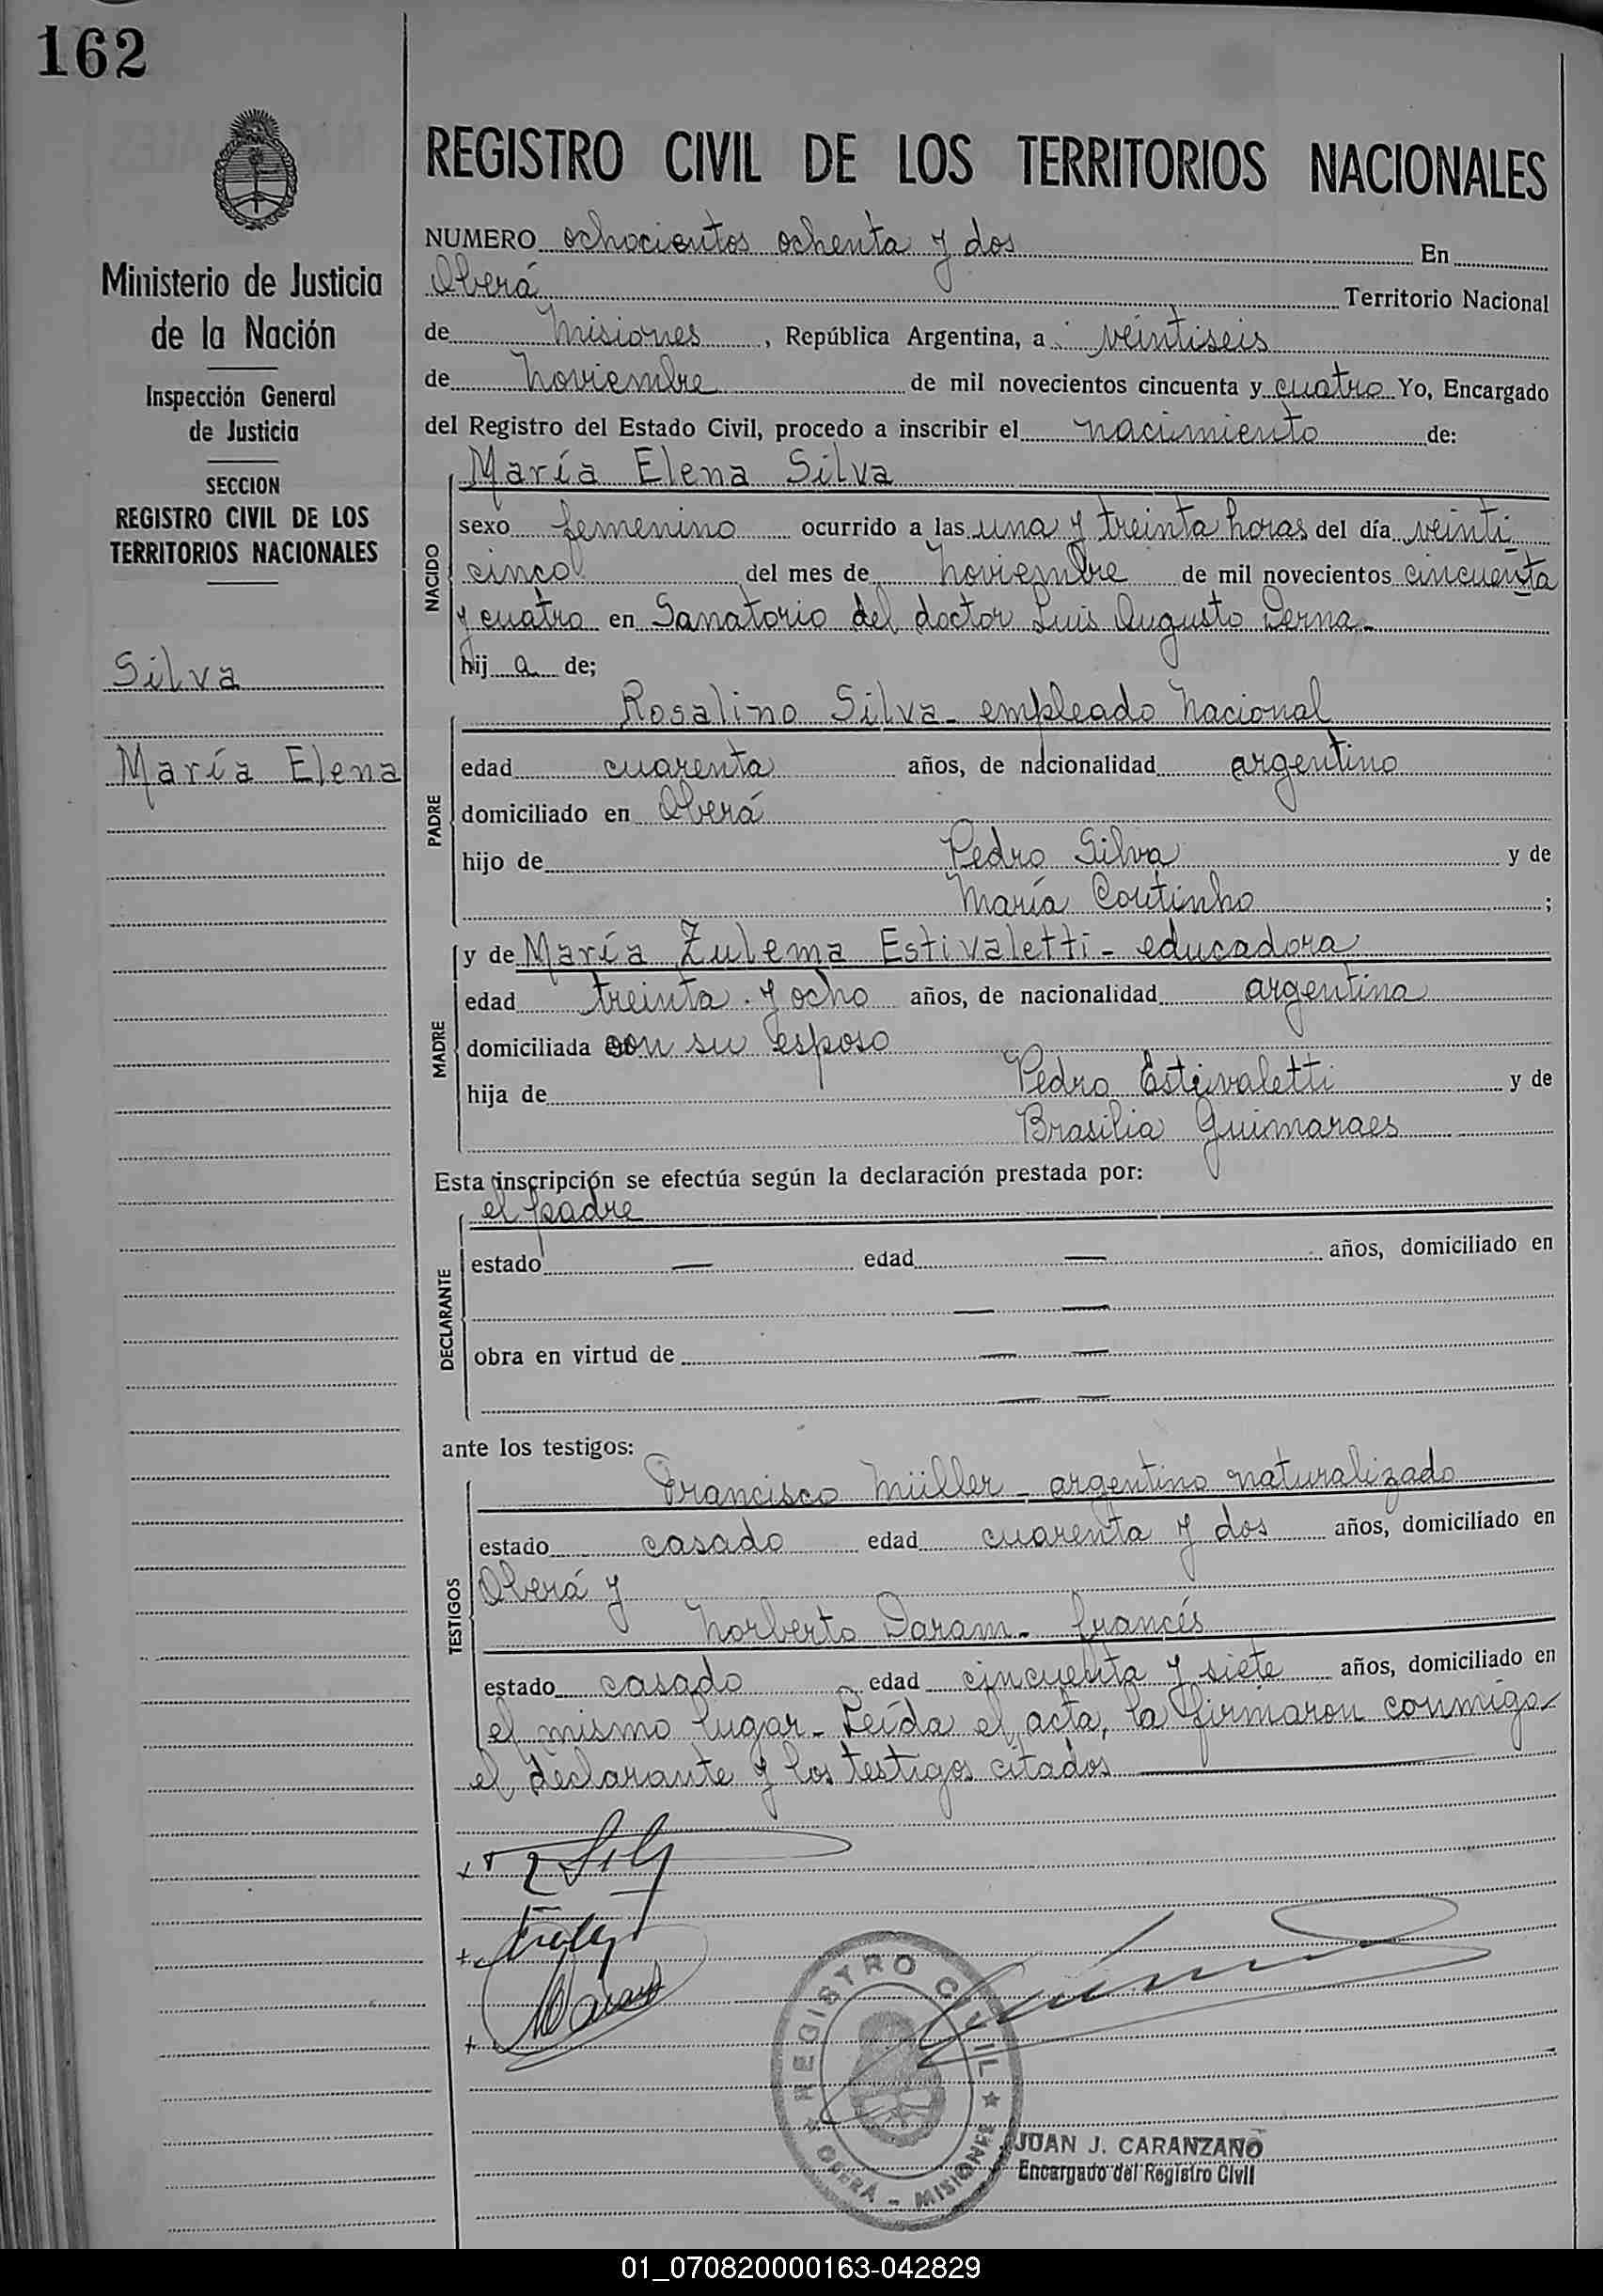 162
Ministerio de Justicia
de la Nación
Inspección General
de Justicia
SECCION
REGISTRO CIVIL DE LOS
TERRITORIOS NACIONALES
Silva
María Elena
REGISTRO CIVIL DE LOS TERRITORIOS NACIONALES
NUMERO ochocientos ochenta y dos En
Oberá Territorio Nacional
de Misiones, República Argentina, a veintiseis
de Noviembre de mil novecientos cincuenta y cuatro Yo, Encargado
del Registro del Estado Civil, procedo a inscribir el nacimiento de:
NACIDO
María Elena Silva
sexo femenino ocurrido a las una y treinta horas del día veinti
cinco del mes de Noviembre de mil novecientos cincuenta
y cuatro en Sanatorio del doctor Luis Augusto Derna-
hij a de;
PADRE
Rosalino Silva- empleado Nacional
edad cuarenta años, de nacionalidad argentino
domiciliado en Oberá
hijo de Pedro Silva y de
María Coutinho ;
MADRE
y de María Zulema Estivaletti- educadora
edad treinta y ocho años, de nacionalidad argentina
domiciliada con su esposo
hija de Pedro Estivaletti y de
Brasilia Guimaraes
Esta inscripción se efectúa según la declaración prestada por:
DECLARANTE
el padre
estado — edad — años, domiciliado en
— —
obra en virtud de — —
— —
ante los testigos:
TESTIGOS
Francisco Müller- argentino naturalizado
estado casado edad cuarenta y dos años, domiciliado en
Oberá y
Norberto Daram- francés
estado casado edad cincuenta y siete años, domiciliado en
el mismo lugar- Leída el acta, la firmaron conmigo
el declarante y los testigos citados
REGISTRO CIVIL
OBERÁ - MISIONES
JUAN J. CARANZANO
Encargado del Registro Civil
01_070820000163-042829